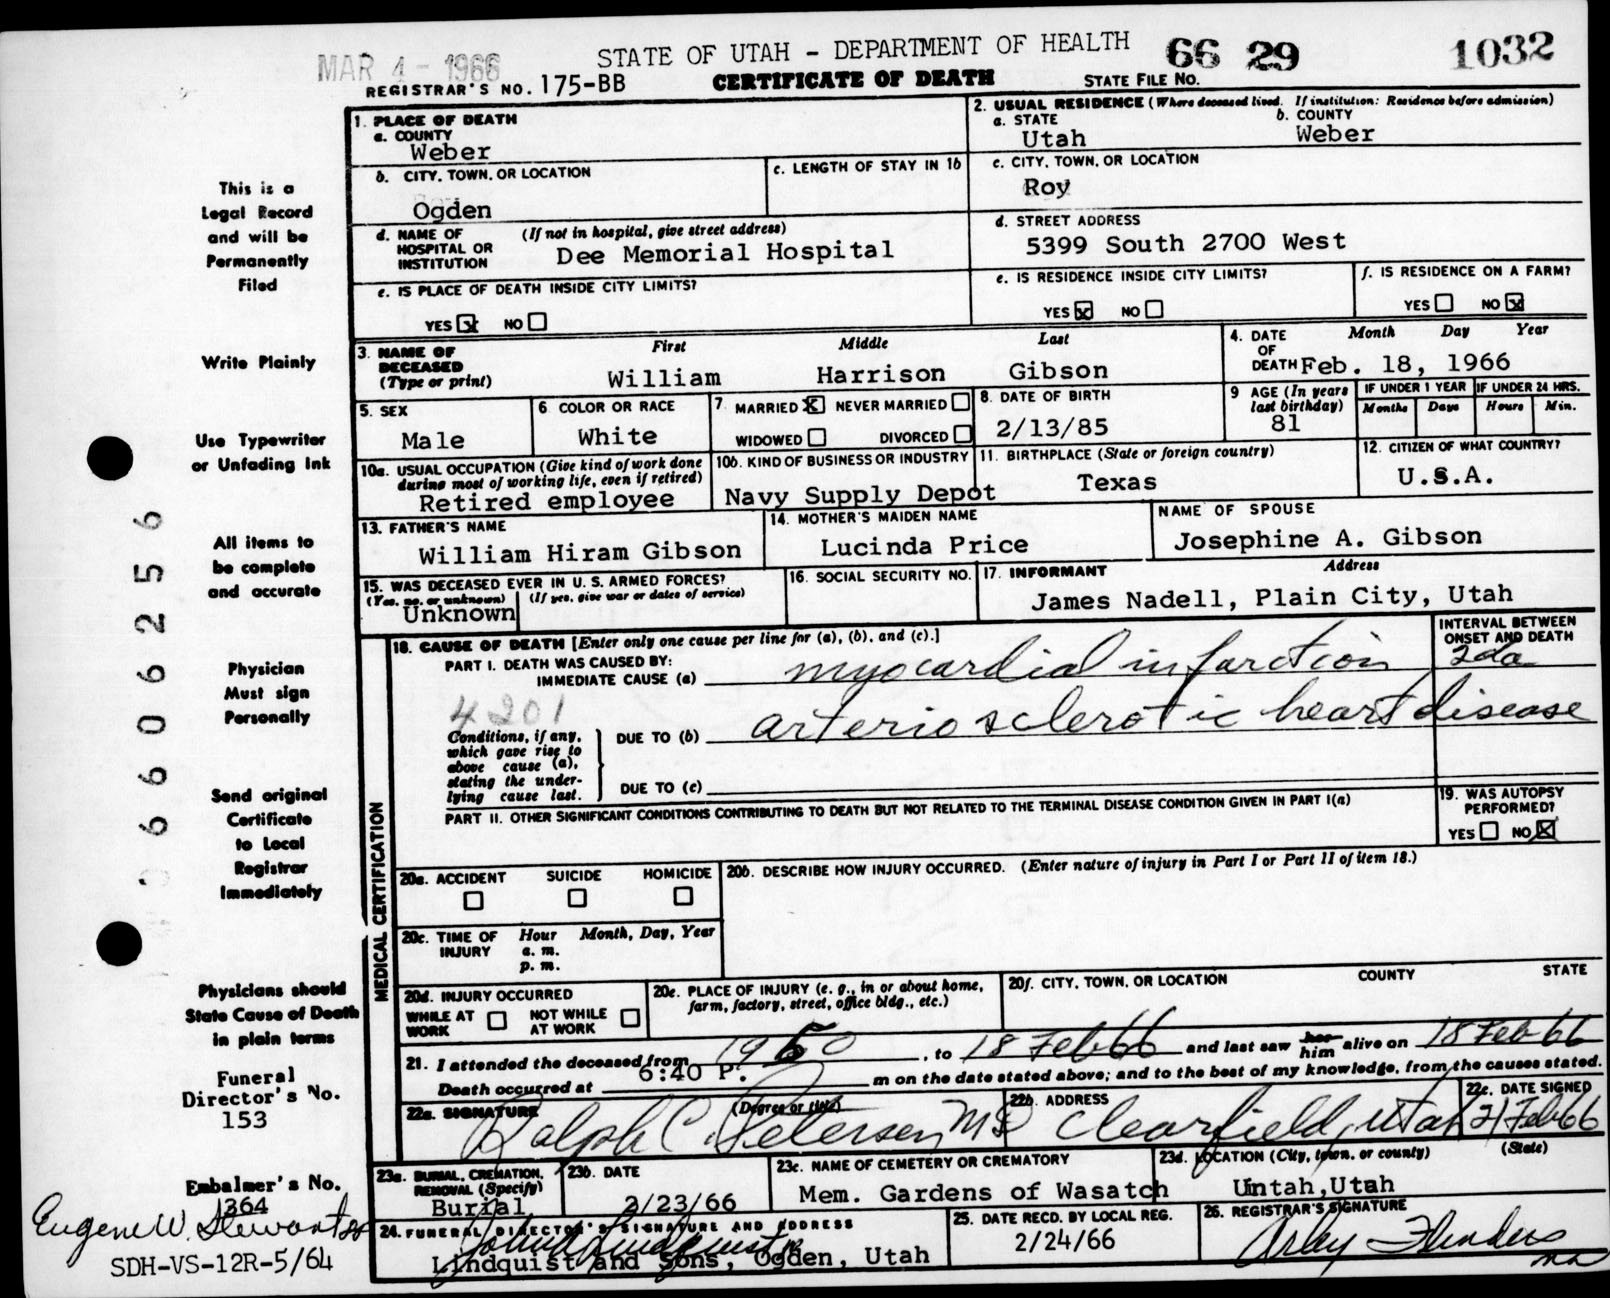 MAR 4 - 1966
STATE OF UTAH - DEPARTMENT OF HEALTH 66 29 1032
REGISTRAR'S NO. 175-BB CERTIFICATE OF DEATH STATE FILE No.
1. PLACE OF DEATH
a. COUNTY
Weber
2. USUAL RESIDENCE (Where deceased lived. If institution: Residence before admission)
a. STATE b. COUNTY
Utah Weber
b. CITY, TOWN, OR LOCATION
Ogden
c. LENGTH OF STAY IN 1b
c. CITY, TOWN, OR LOCATION
Roy
d. NAME OF HOSPITAL OR INSTITUTION (If not in hospital, give street address)
Dee Memorial Hospital
d. STREET ADDRESS
5399 South 2700 West
e. IS PLACE OF DEATH INSIDE CITY LIMITS?
YES ☒ NO ☐
e. IS RESIDENCE INSIDE CITY LIMITS?
YES ☒ NO ☐
f. IS RESIDENCE ON A FARM?
YES ☐ NO ☒
3. NAME OF DECEASED (Type or print)
First Middle Last
William Harrison Gibson
4. DATE OF DEATH Month Day Year
Feb. 18, 1966
5. SEX
Male
6 COLOR OR RACE
White
7 MARRIED ☒ NEVER MARRIED ☐
WIDOWED ☐ DIVORCED ☐
8. DATE OF BIRTH
2/13/85
9 AGE (In years last birthday)
81
IF UNDER 1 YEAR
Months Days
IF UNDER 24 HRS.
Hours Min.
10a. USUAL OCCUPATION (Give kind of work done during most of working life, even if retired)
Retired employee
10b. KIND OF BUSINESS OR INDUSTRY
Navy Supply Depot
11. BIRTHPLACE (State or foreign country)
Texas
12. CITIZEN OF WHAT COUNTRY?
U.S.A.
13. FATHER'S NAME
William Hiram Gibson
14. MOTHER'S MAIDEN NAME
Lucinda Price
NAME OF SPOUSE
Josephine A. Gibson
15. WAS DECEASED EVER IN U. S. ARMED FORCES?
(Yes, no, or unknown) (If yes, give war or dates of service)
Unknown
16. SOCIAL SECURITY NO.
17. INFORMANT Address
James Nadell, Plain City, Utah
18. CAUSE OF DEATH [Enter only one cause per line for (a), (b), and (c).]
INTERVAL BETWEEN ONSET AND DEATH
PART I. DEATH WAS CAUSED BY:
IMMEDIATE CAUSE (a) myocardial infarction 2da
4201
Conditions, if any, which gave rise to above cause (a), stating the underlying cause last.
DUE TO (b) arteriosclerotic heart disease
DUE TO (c)
PART II. OTHER SIGNIFICANT CONDITIONS CONTRIBUTING TO DEATH BUT NOT RELATED TO THE TERMINAL DISEASE CONDITION GIVEN IN PART I(a)
19. WAS AUTOPSY PERFORMED?
YES ☐ NO ☒
MEDICAL CERTIFICATION
20a. ACCIDENT SUICIDE HOMICIDE
☐ ☐ ☐
20b. DESCRIBE HOW INJURY OCCURRED. (Enter nature of injury in Part I or Part II of item 18.)
20c. TIME OF INJURY Hour Month, Day, Year
a. m.
p. m.
20d. INJURY OCCURRED
WHILE AT WORK ☐ NOT WHILE AT WORK ☐
20e. PLACE OF INJURY (e. g., in or about home, farm, factory, street, office bldg., etc.)
20f. CITY, TOWN, OR LOCATION COUNTY STATE
21. I attended the deceased from 1950, to 18 Feb 66 and last saw her him alive on 18 Feb 66
Death occurred at 6:40 P. m on the date stated above; and to the best of my knowledge, from the causes stated.
22a. SIGNATURE (Degree or title)
Ralph C. Petersen MD
22b. ADDRESS
Clearfield, Utah
22c. DATE SIGNED
21 Feb 66
23a. BURIAL, CREMATION, REMOVAL (Specify)
Burial
23b. DATE
2/23/66
23c. NAME OF CEMETERY OR CREMATORY
Mem. Gardens of Wasatch
23d. LOCATION (City, town, or county) (State)
Untah, Utah
24. FUNERAL DIRECTOR'S SIGNATURE AND ADDRESS
Lindquist and Sons, Ogden, Utah
25. DATE RECD. BY LOCAL REG.
2/24/66
26. REGISTRAR'S SIGNATURE
This is a
Legal Record
and will be
Permanently
Filed
Write Plainly
Use Typewriter
or Unfading Ink
All items to
be complete
and accurate
Physician
Must sign
Personally
Send original
Certificate
to Local
Registrar
Immediately
Physicians should
State Cause of Death
in plain terms
Funeral
Director's No.
153
Embalmer's No.
1364
Eugene W. Stewart
SDH-VS-12R-5/64
660625 6